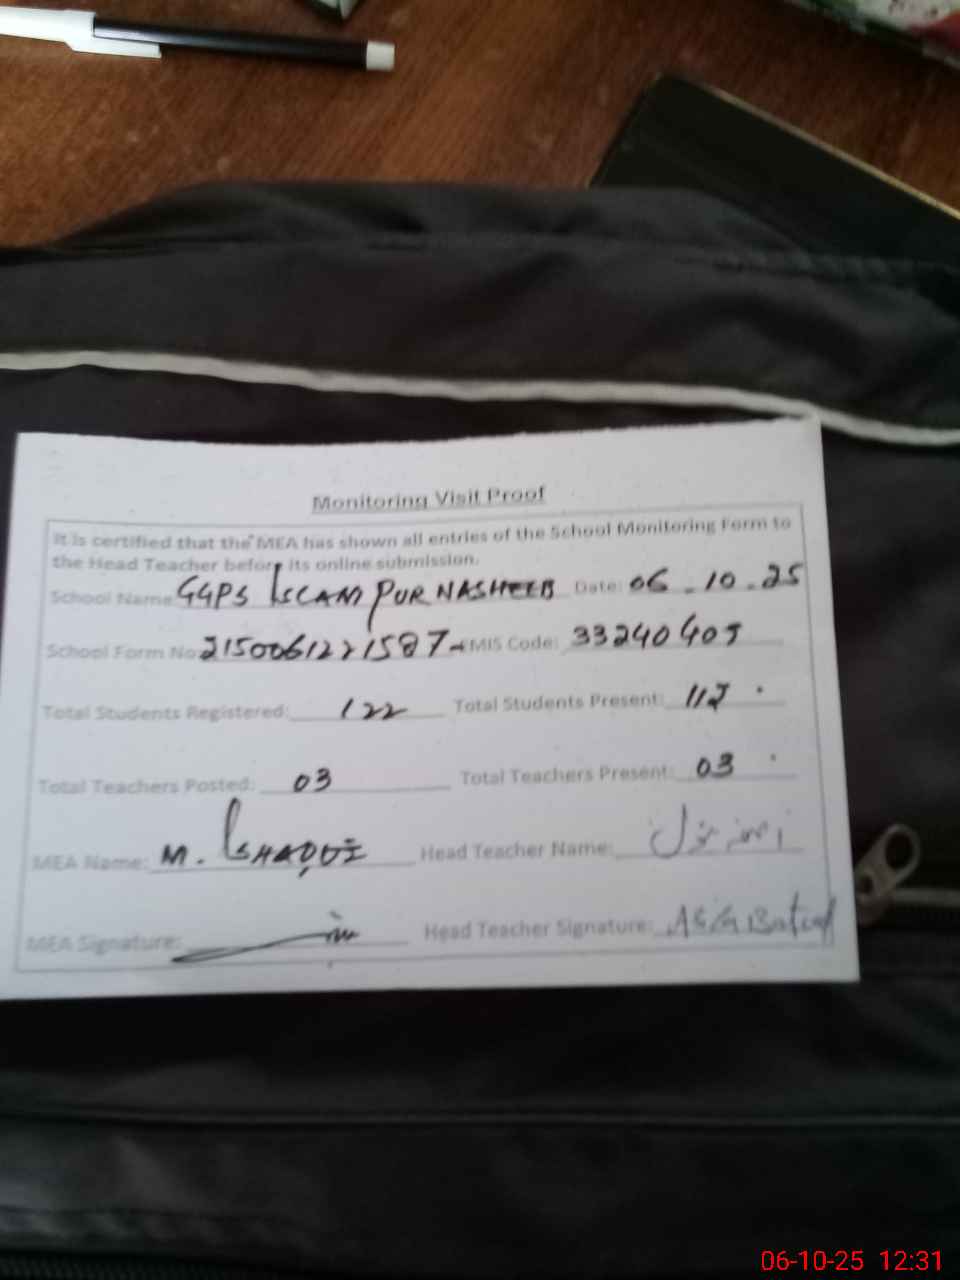 Monitoring Visit Proof
It is certified that the MEA has shown all entries of the School Monitoring Form to
the Head Teacher before its online submission.
School Name GGPS ISLAM PUR NASHEEB Date: 06-10-25
School Form No 2150061221587 EMIS Code: 33240405
Total Students Registered: 122 Total Students Present:
Total Teachers Posted: 03 Total Teachers Present: 03
MEA Name: M. ISHAQUE Head Teacher Name:
MEA Signature: Head Teacher Signature: Asia Batool
06-10-25 12:31